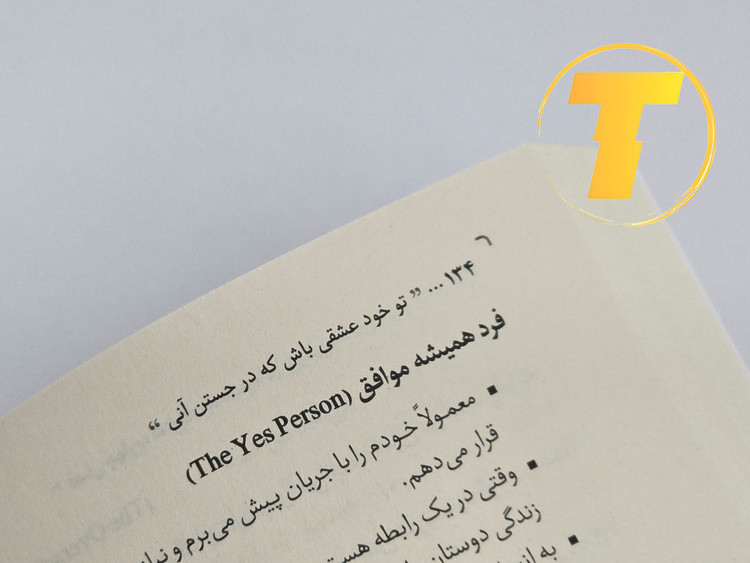 ۱۳۴ ... ” تو خود عشقی باش که در جستن آنی “
فرد همیشه موافق (The Yes Person)
▪ معمولاً خودم را با جریان پیش می‌برم و
قرار می‌دهم.
▪ وقتی در یک رابطه
زندگی دوستان
▪ به
T